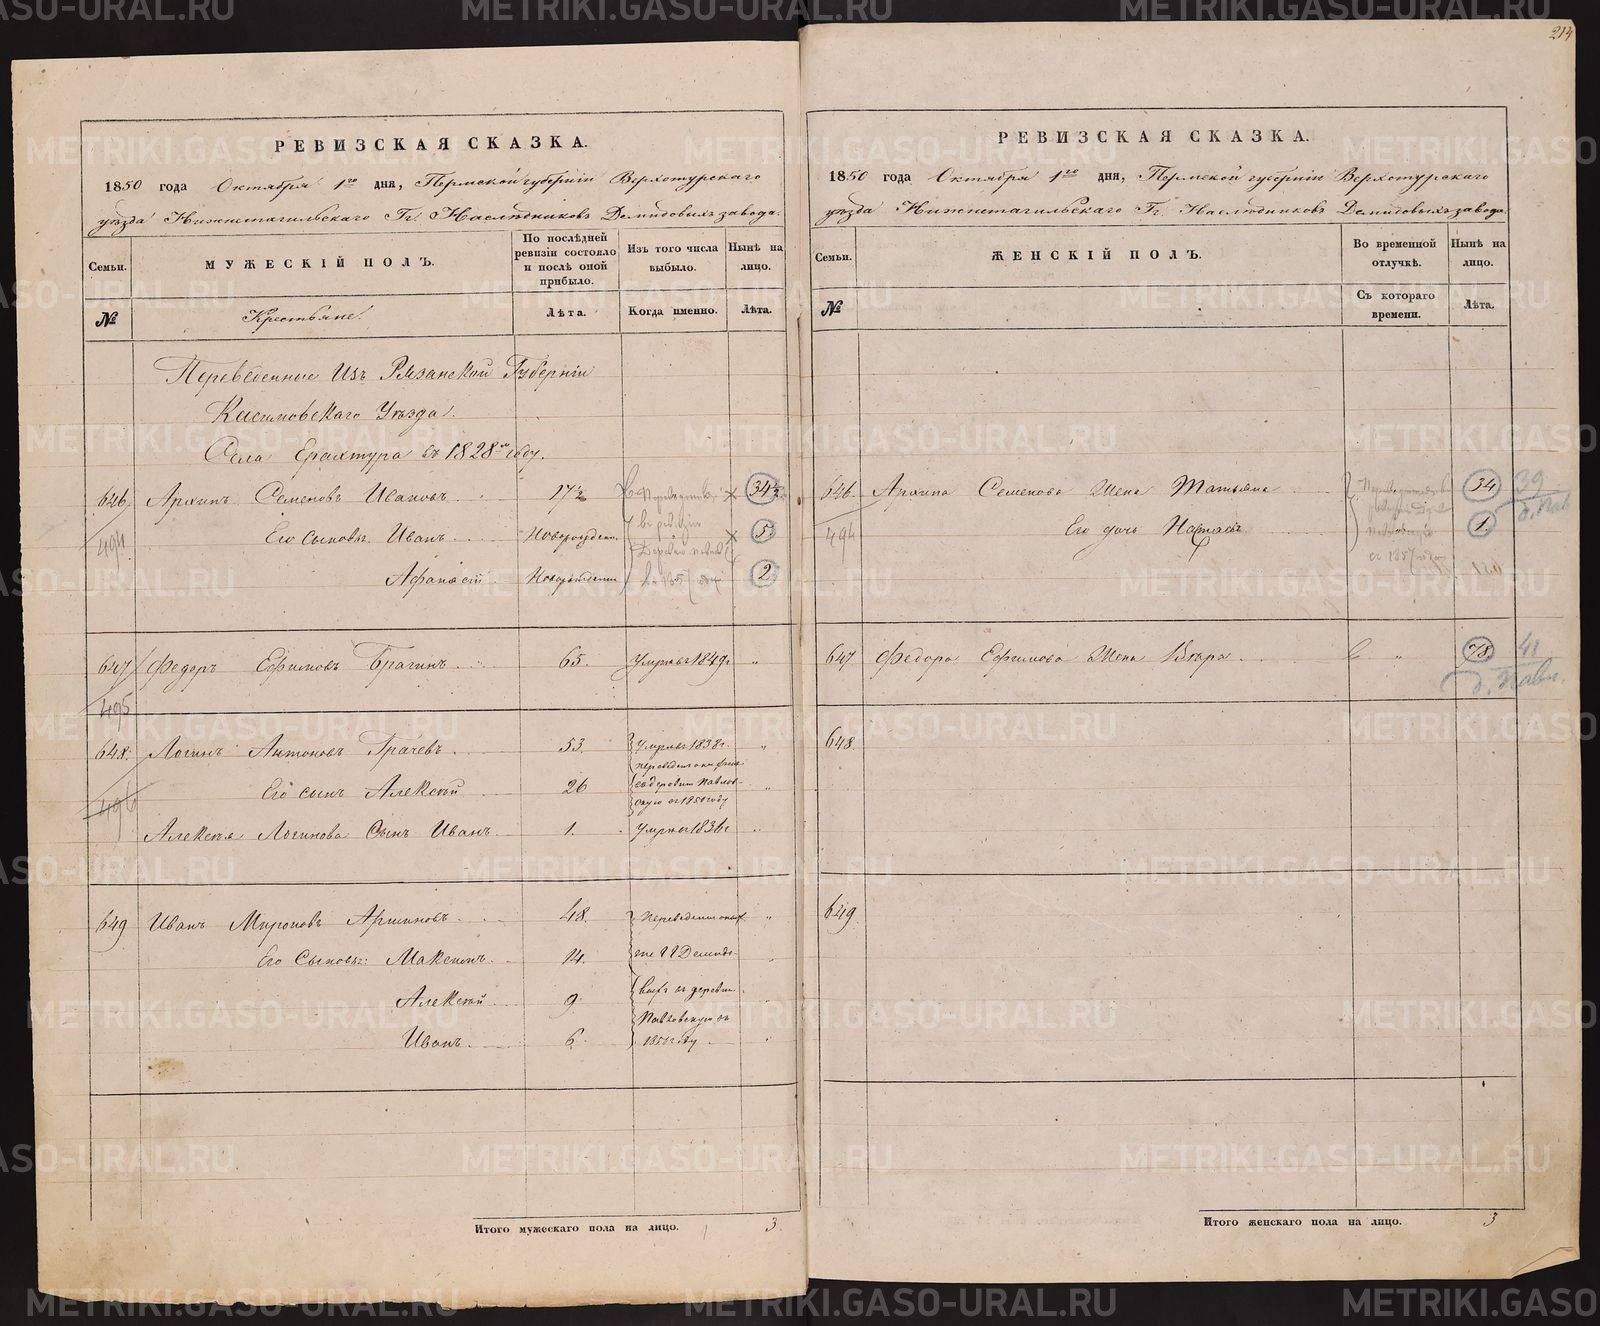 214
РЕВИЗСКАЯ СКАЗКА.
1850 года Октября 1го дня, Пермской губернiи Верхотурскаго
уѣзда Нижнетагильскаго Гг. Наслѣдниковъ Демидовыхъ завода.
Семьи.
МУЖЕСКІЙ ПОЛЪ.
По послѣдней ревизіи состояло и послѣ оной прибыло.
Изъ того числа выбыло.
Нынѣ на лицо.
№
Крестьяне.
Лѣта.
Когда именно.
Лѣта.
Переведенные Изъ Рязанской Губернiи
Касимовскаго Уѣзда.
Села Ерахтура въ 1828м году.
646 Архипъ Семеновъ Ивановъ 17½ 34½
494 Его сыновья Иванъ Новорожден. 5
Афанасiй Новорожденн 2
647 Федоръ Ефимовъ Брагинъ 65. Умръ въ 1849г "
495
648. Логинъ Антоновъ Грачевъ 53 Умръ въ 1838г. "
Его сынъ Алексѣй 26 въ деревню Павловскую въ 1850 году "
496
Алексѣя Логинова Сынъ Иванъ 1. Умръ въ 1836г "
649 Иванъ Мироновъ Аршиновъ 48. "
Его Сыновья: Максимъ 14. "
Алексѣй 9. въ деревню
Иванъ 6. Павловскую въ 185 году "
Итого мужескаго пола на лицо. 3.
РЕВИЗСКАЯ СКАЗКА.
1850 года Октября 1го дня, Пермской губернiи Верхотурскаго
уѣзда Нижнетагильскаго Гг. Наслѣдниковъ Демидовыхъ завода.
Семьи.
ЖЕНСКІЙ ПОЛЪ.
Во временной отлучкѣ.
Нынѣ на лицо.
№
Съ котораго времени.
Лѣта.
646. Архипа Семенова Жена Татьяна 34 39
494 Его дочь Настасья 1.
647 Федора Ефимова Жена Вѣра " 78. 41
д. Павл.
648.
649.
Итого женскаго пола на лицо. 3
METRIKI.GASO-URAL.RU